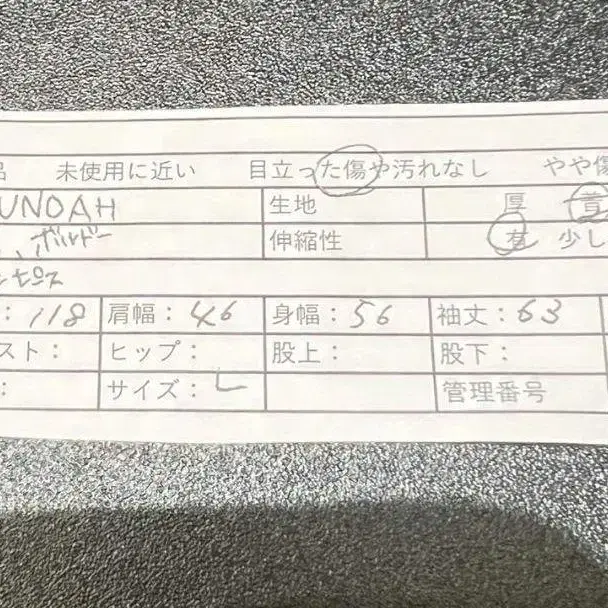 品 未使用に近い 目立った傷や汚れなし やや傷
UNOAH 生地 厚 普
、ボルドー 伸縮性 有 少し
ンピース
：118 肩幅：46 身幅：56 袖丈：63
スト： ヒップ： 股上： 股下：
： サイズ：L 管理番号